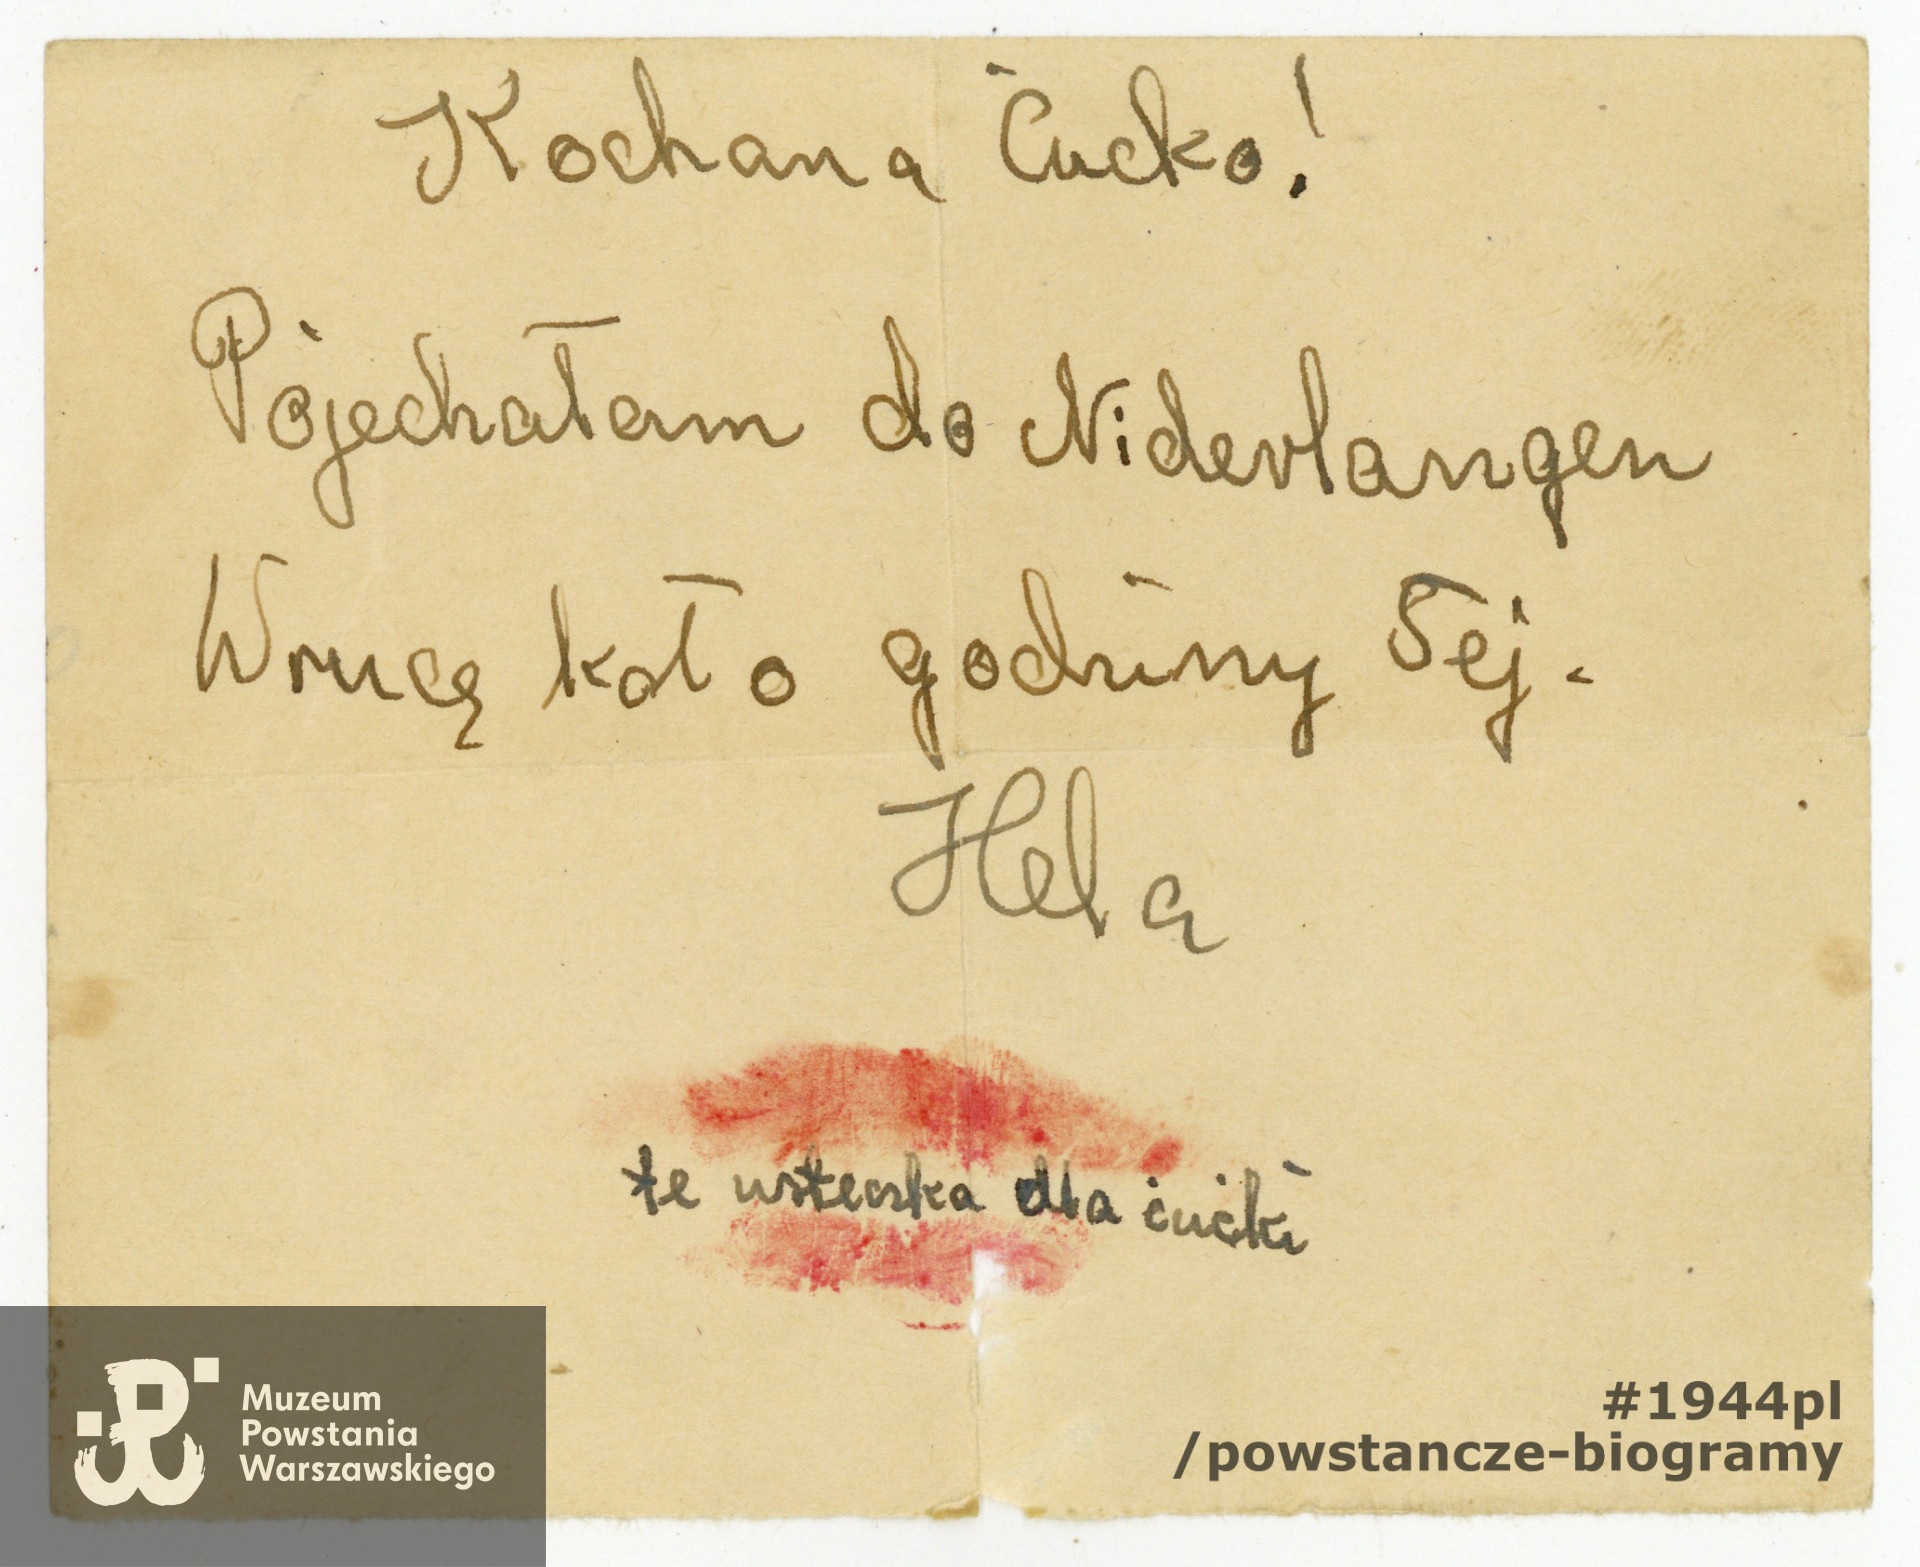 Kochana Ćucko!
Pojechałam do Niderlangen
Wrucę koło godziny 5ej.
Hela
te usteczka dla ćucki
Muzeum
Powstania
Warszawskiego
#1944pl
/powstancze-biogramy